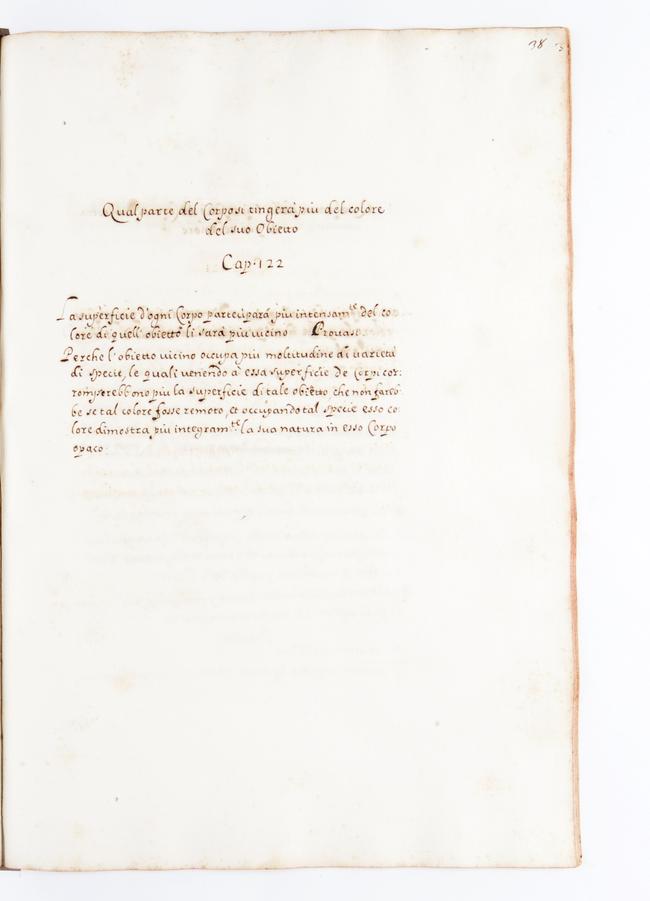 38
Qual parte del Corpo si tingerà più del colore
del suo Obietto
Cap. 122
La superficie d'ogni Corpo parteciparà più intensam.te del co
lore di quell' obietto li sarà più vicino Provasi
Perche l'obietto vicino occupa più moltitudine di varietà
di specie, le quali venendo à essa superficie de Corpi cor:
romperebbono più la superficie di tale obietto, che non fareb
be se tal colore fosse remoto, et occupando tal specie esso co
lore dimostra più integram.te la sua natura in esso Corpo
opaco